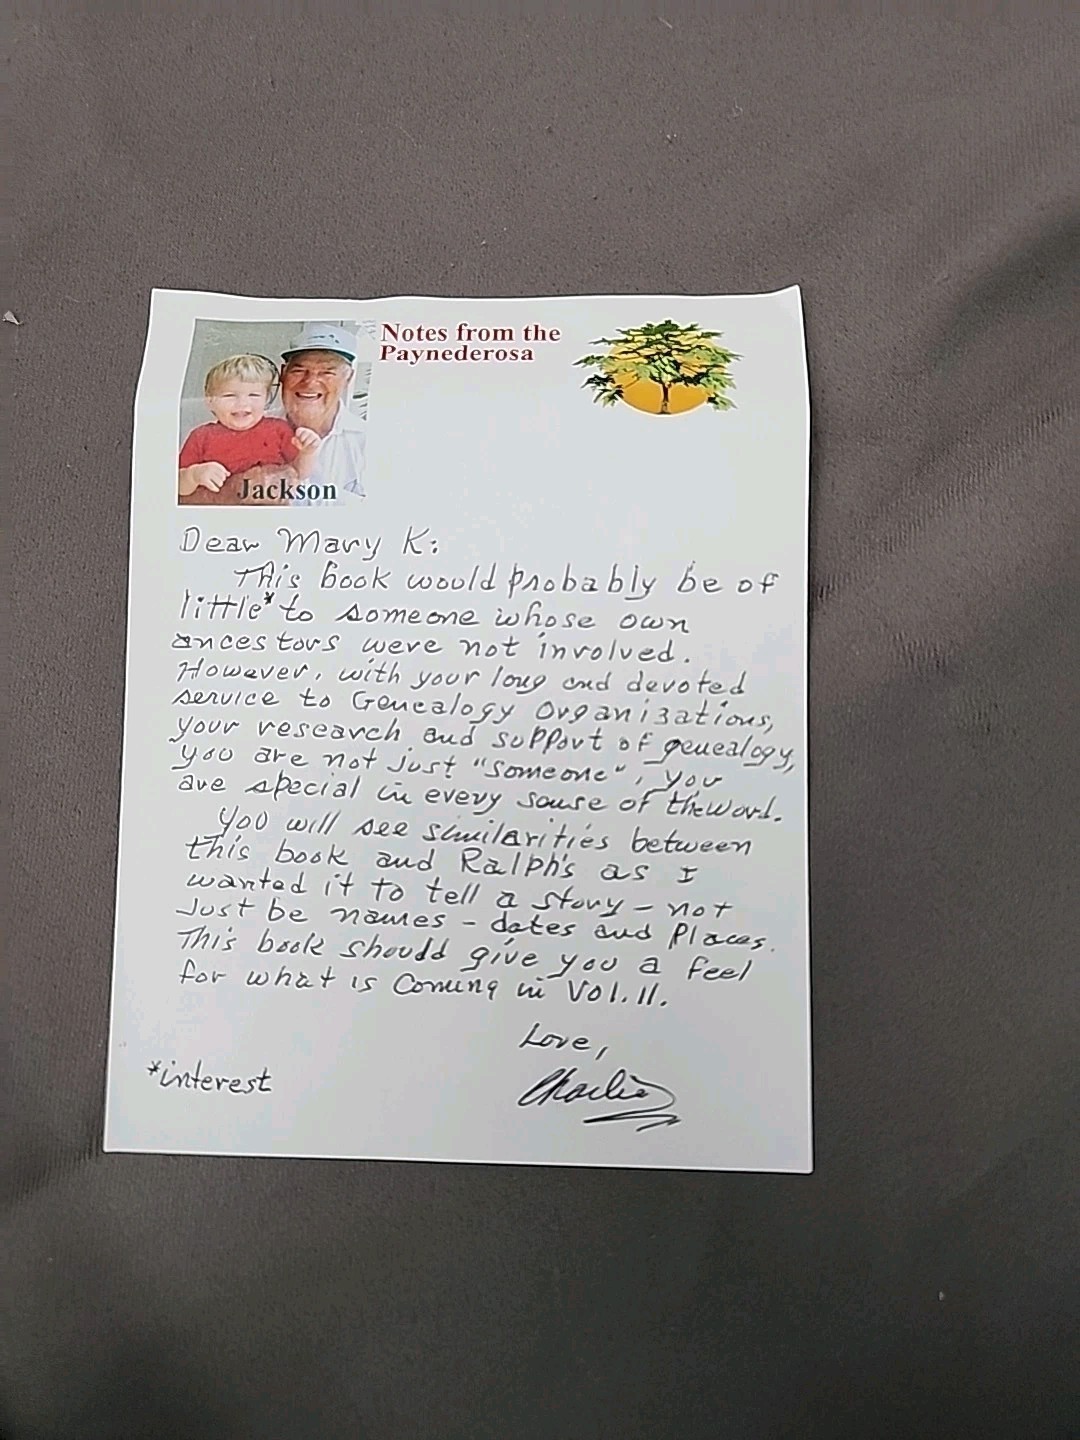 Notes from the
Paynederosa
Jackson
Dear Mary K:
This book would probably be of
little* to someone whose own
ancestors were not involved.
However, with your long and devoted
service to Genealogy Organizations,
your research and support of genealogy,
you are not just "someone", you
are special in every sense of the word.
You will see similarities between
this book and Ralph's as I
wanted it to tell a story – not
Just be names – dates and places.
This book should give you a feel
for what is coming in Vol. II.
Love,
Charlie
*interest